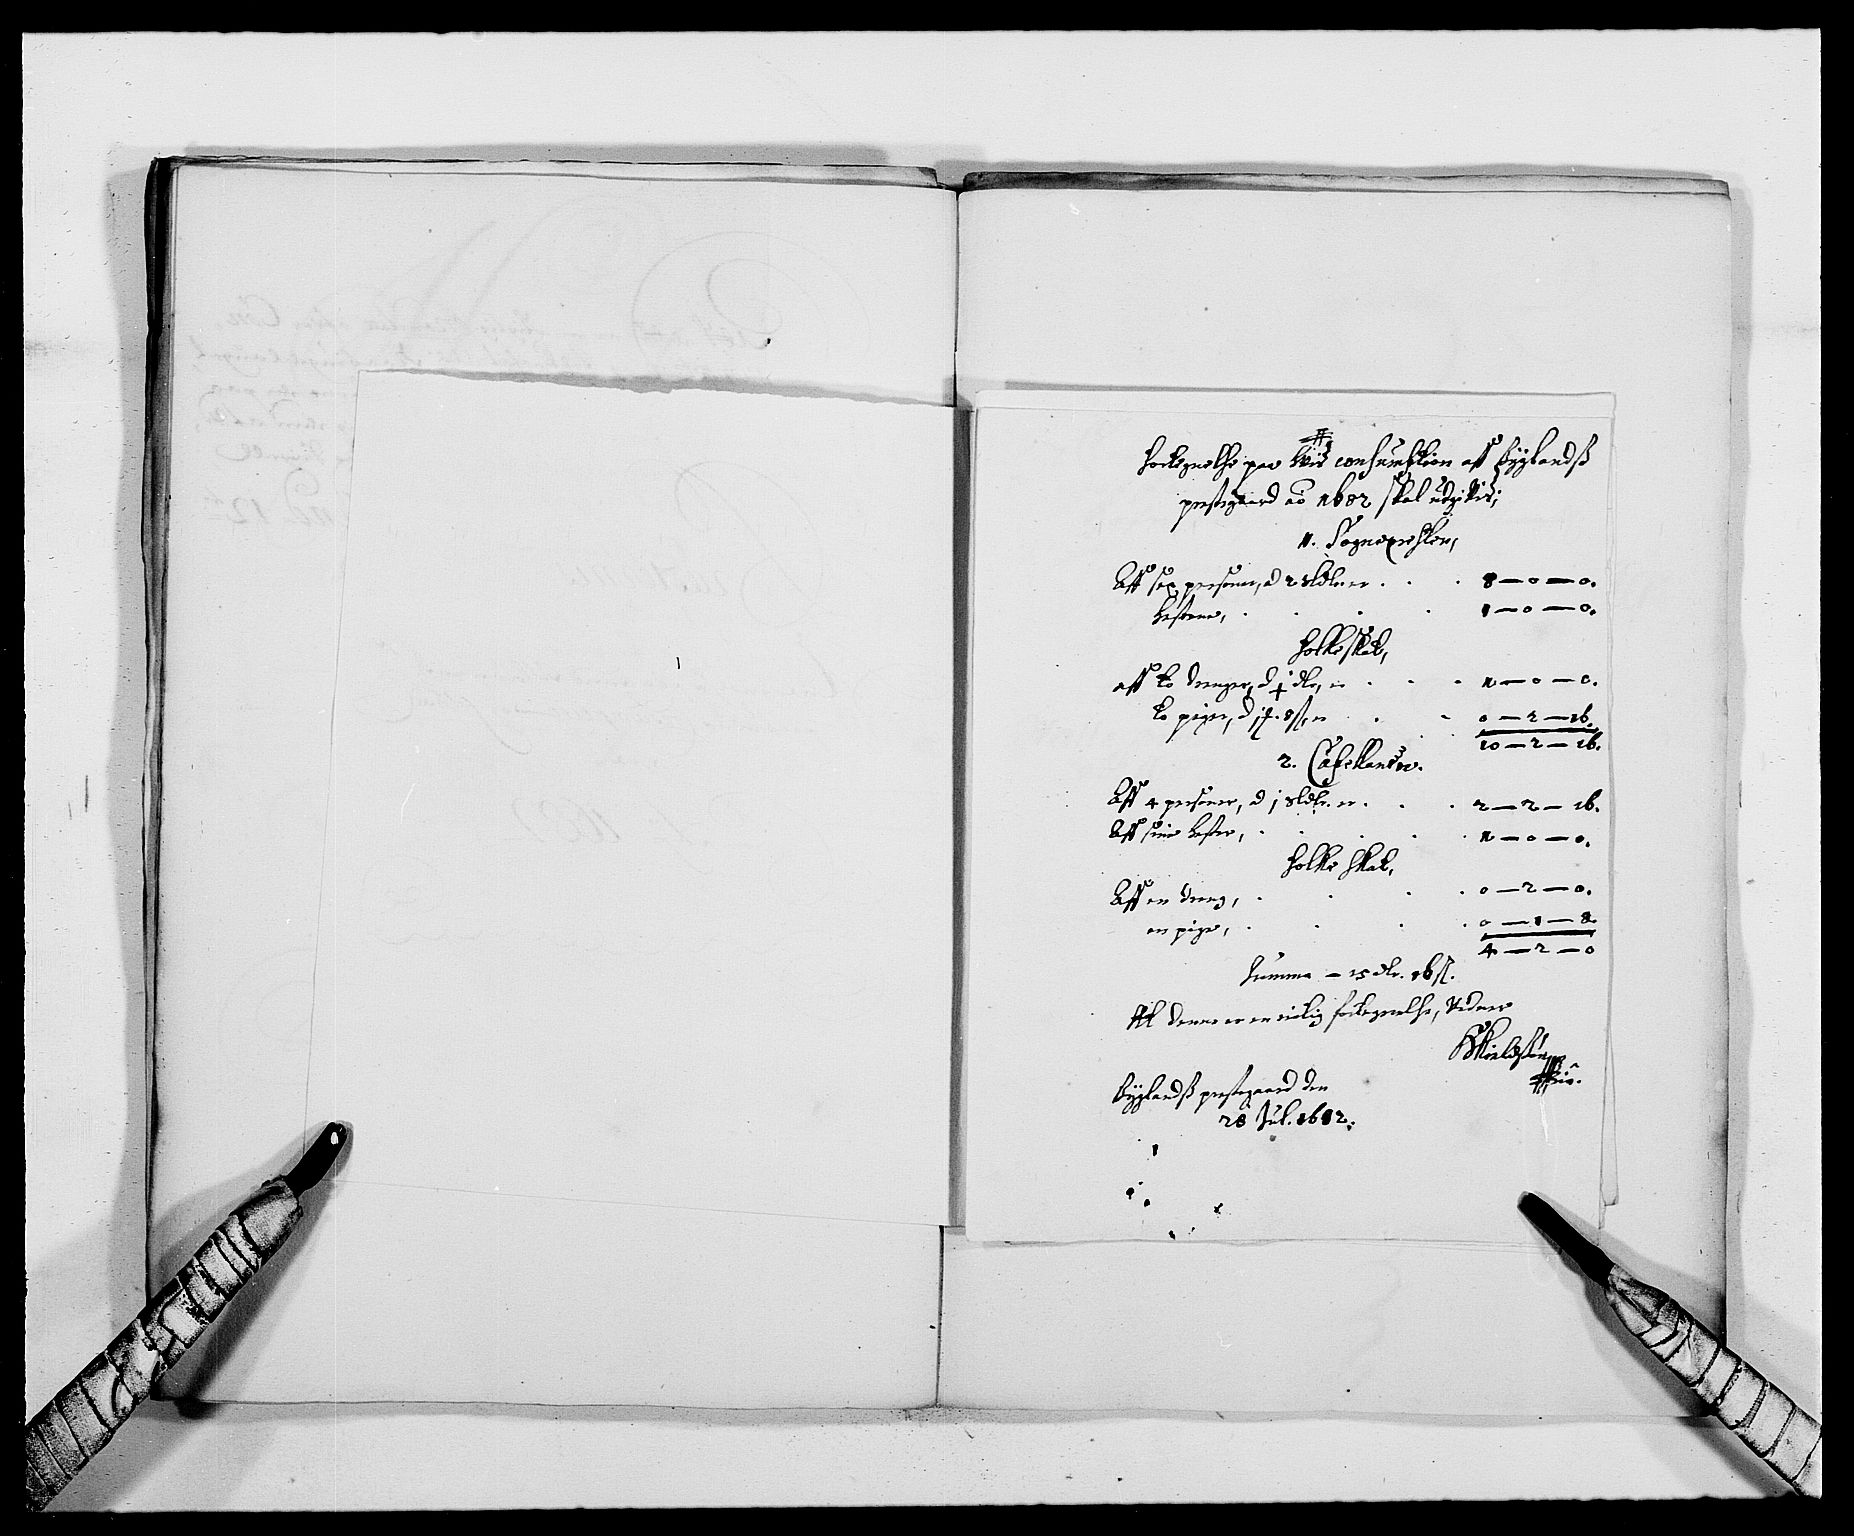 Fortegnelse paa hvis consumption aff Byglandß
prestegaard aō 1682 skal udgivis;
1. Sognepresten,
Aff sex personer, à 2 sldlr. er . . . 8 — 0 — 0.
hestene, . . . . 1 — 0 — 0.
Folkeskat,
aff to drenger, à ½ dlr, er . . . 1 — 0 — 0.
to piger, à 1 ƒ. 8 ß, er . . 0 — 2 — 16.
10 — 2 — 16.
2. Capellanen.
Aff 4 personer, à 1 sldlr. er . . . 2 — 2 — 16.
Aff sine hester, . . . . 1 — 0 — 0.
Folke skat,
Aff en dreng, . . . . 0 — 2 — 0.
en pige, . . . . 0 — 1 — 8.
4 — 2 — 0
Summa — 15 dlr. 16 ß.
At denne er en rictig fortegnelse, vidner
Byglandß prestegaard den
28 Jul. 1682.